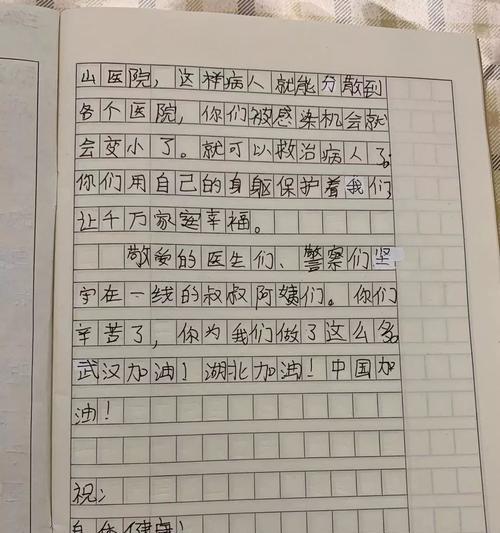 山医院，这样病人就能分散到
各个医院，你们被感染机会就
会变小了。就可以救治病人了。
你们用自己的身躯保护着我们，
让千万家庭幸福。
敬爱的医生们、警察们坚
守在一线的叔叔阿姨们。你们
辛苦了，你为我们做了这么多。
武汉加油！湖北加油！中国加
油！
祝：
身体健康！